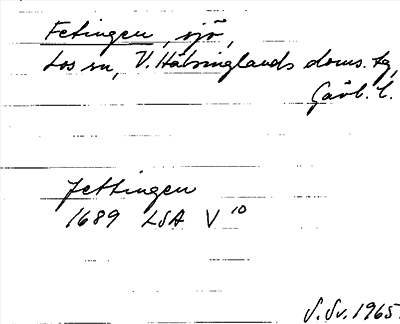 Fetingen, sjö,
Los sn, V. Hälsinglands doms. tg,
Gävl. l.
Jettingen
1689 LSA V 10
S. Sv. 1965.